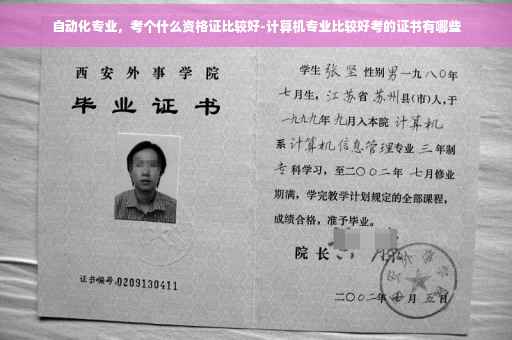 自动化专业，考个什么资格证比较好-计算机专业比较好考的证书有哪些
西安外事学院
毕业证书
证书编号:0209130411
学生 张坚 性别 男 一九八〇年
七月生，江苏省 苏州县(市)人，于
一九九九年 九月入本院 计算机
系 计算机信息管理专业 三年制
专科学习，至二〇〇二年 七月修业
期满，学完教学计划规定的全部课程，
成绩合格，准予毕业。
院长
二〇〇二年 七月 五日